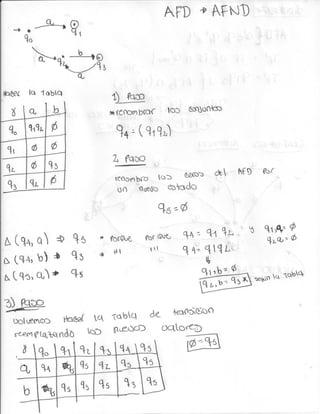 AFD → AFND
a
q0
q1
a
q2
b
q3
a
Hacer la Tabla
δ a b
q0 q1q2 ∅
q1 ∅ ∅
q2 ∅ q3
q3 q2 ∅
1) Paso
* renombrar los conjuntos
q4 = (q1q2)
2. Paso
renombro los casos del AFD por
un nuevo estado
q5 = ∅
Δ(q4, a) ⇒ q5 * Porque Por que q4 = q1 q2 y q1,a = ∅
q2,a = ∅
Δ(q4, b) ⇒ q3 * q4 = q1q2
Δ(q5, a) ⇒ q5
q1,b = ∅
q2,b = q3 * según la tabla
3) Paso
volvemos Hacer la Tabla de transision
reemplazando los nuevos valores
∅ = q5
δ q0 q1 q2 q3 q4 q5
a q4 q5 q5 q2 q5 q5
b q5 q5 q3 q5 q3 q5